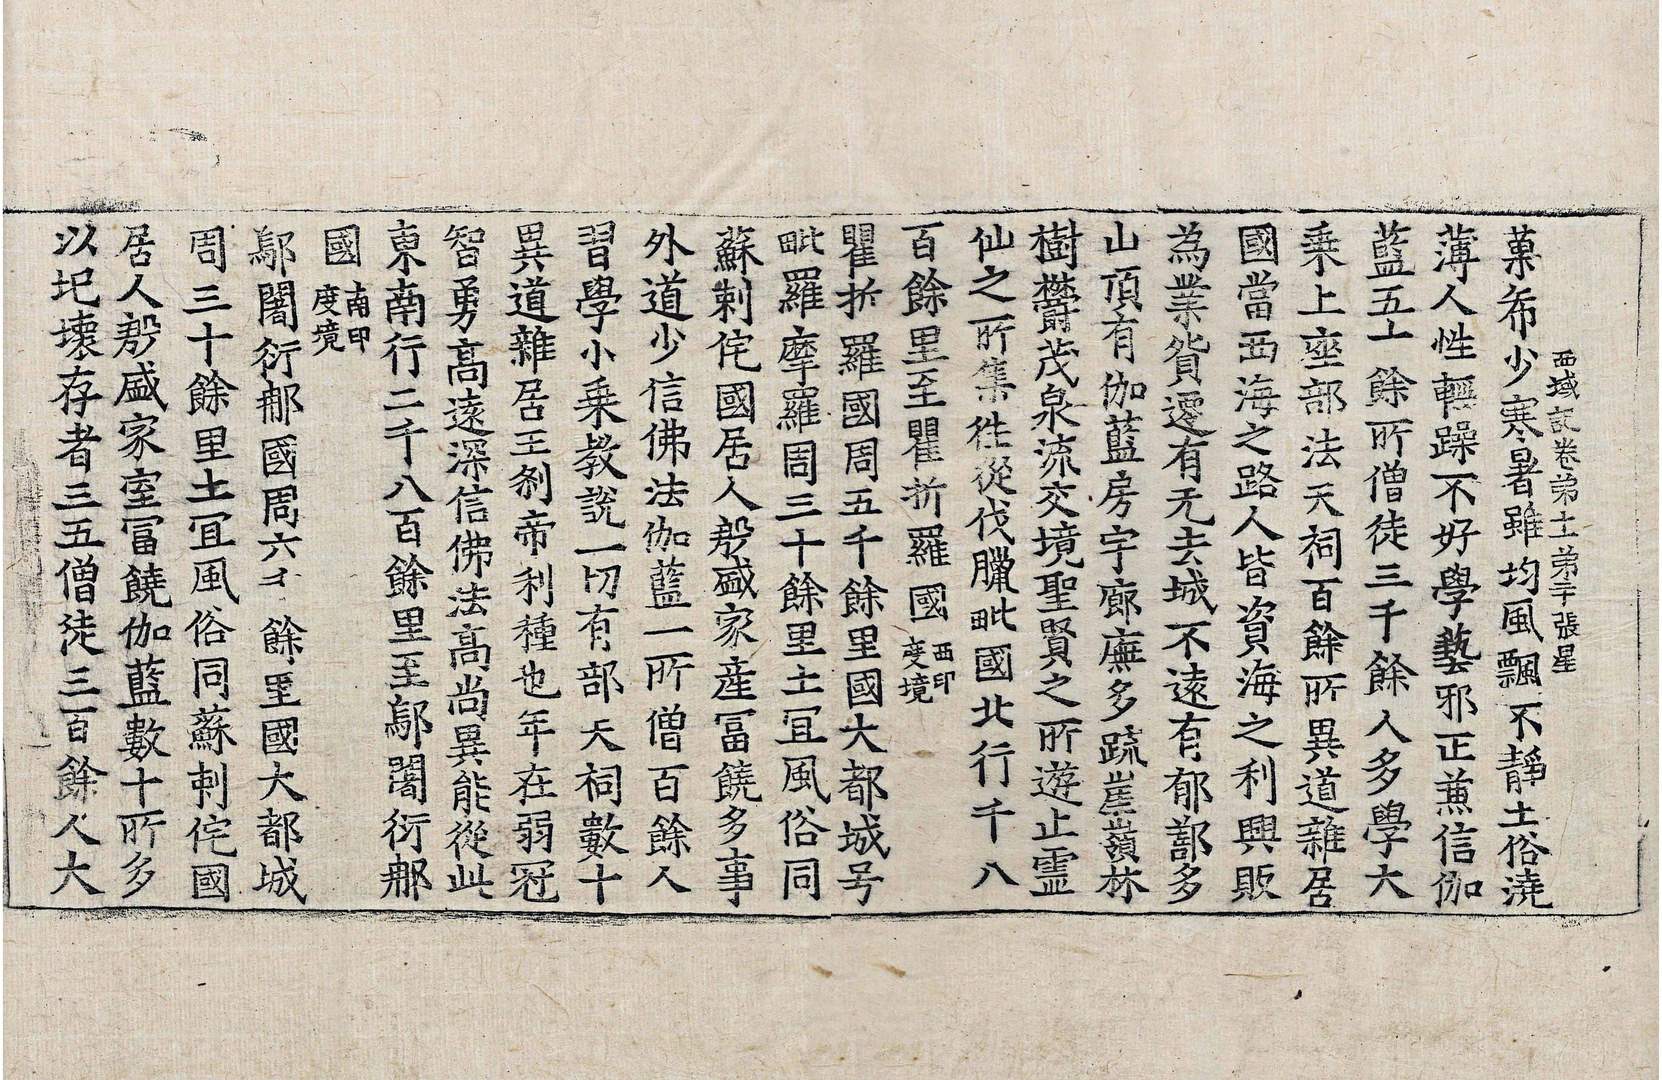 西域記卷第十一第二十張星
菓希少寒暑雖均風飄不靜土俗澆
薄人性輕躁不好學藝邪正兼信伽
藍五十餘所僧徒三千餘人多學大
乗上座部法天祠百餘所異道雜居
國當西海之路人皆資海之利興販
為業貿遷有无去城不遠有郁鄯多
山頂有伽藍房宇廊廡多疏崖嶺林
樹欝茂泉流交境聖賢之所遊止靈
仙之所集往從伐臘毗國北行千八
百餘里至瞿折羅國西印度境
瞿折羅國周五千餘里國大都城号
毗羅摩羅周三十餘里土冝風俗同
蘇剌侘國居人殷盛家産冨饒多事
外道少信佛法伽藍一所僧百餘人
習學小乗教說一切有部天祠數十
異道雜居王剎帝利種也年在弱冠
智勇高遠深信佛法高尚異能從此
東南行二千八百餘里至鄔闍衍那
國南印度境
鄔闍衍那國周六千餘里國大都城
周三十餘里土冝風俗同蘇剌侘國
居人殷盛家室冨饒伽藍數十所多
以圮壞存者三五僧徒三百餘人大